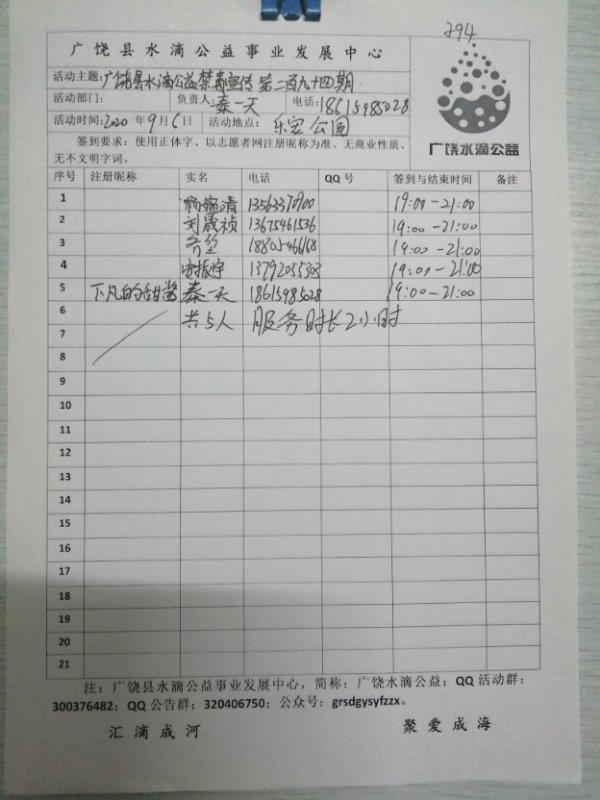 294
广饶县水滴公益事业发展中心
活动主题:广饶县水滴公益禁毒宣传第二百九十四期
活动部门: 负责人:秦一天 电话:18615985028
活动时间:2020年9月6日 活动地点:乐安公园
广饶水滴公益
签到要求:使用正体字、以志愿者网注册昵称为准、无商业性质、
无不文明字词。
序号 注册昵称 实名 电话 QQ号 签到与结束时间 备注
1 杨婉清 13563370900 19:00-21:00
2 刘晟祯 13675461536 19:00-21:00
3 18805466168 19:00-21:00
4 13792055303 19:00-21:00
5 下凡的甜酱 秦一天 18615985028 19:00-21:00
6 共5人 服务时长2小时
7
8
9
10
11
12
13
14
15
16
17
18
19
20
21
注:广饶县水滴公益事业发展中心,简称:广饶水滴公益;QQ活动群:
300376482;QQ公告群:320406750;公众号:grsdgysyfzzx。
汇滴成河 聚爱成海